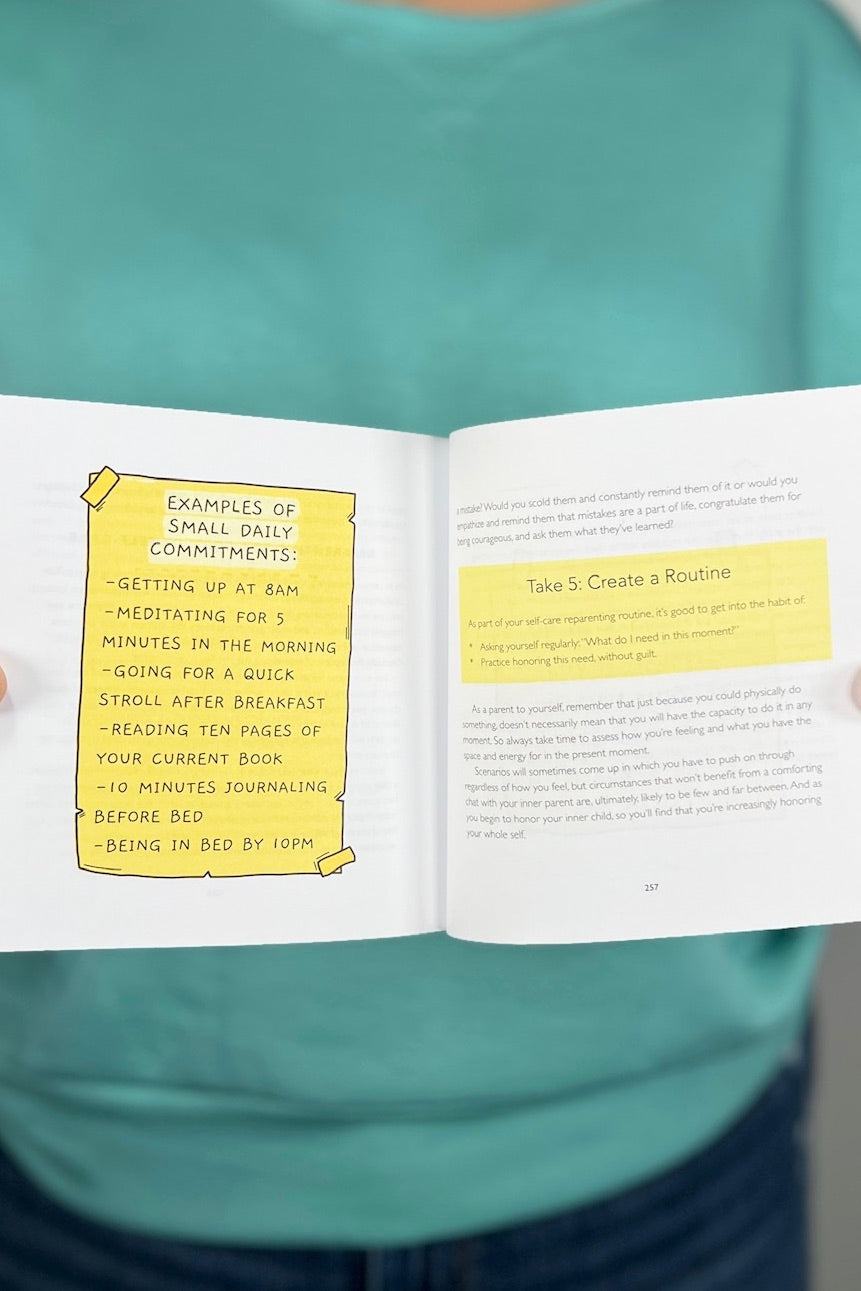 EXAMPLES OF
SMALL DAILY
COMMITMENTS:
-GETTING UP AT 8AM
-MEDITATING FOR 5
MINUTES IN THE MORNING
-GOING FOR A QUICK
STROLL AFTER BREAKFAST
-READING TEN PAGES OF
YOUR CURRENT BOOK
-10 MINUTES JOURNALING
BEFORE BED
-BEING IN BED BY 10PM
a mistake? Would you scold them and constantly remind them of it or would you
empathize and remind them that mistakes are a part of life, congratulate them for
being courageous, and ask them what they've learned?
Take 5: Create a Routine
As part of your self-care reparenting routine, it's good to get into the habit of:
* Asking yourself regularly: "What do I need in this moment?"
* Practice honoring this need, without guilt.
As a parent to yourself, remember that just because you could physically do
something, doesn't necessarily mean that you will have the capacity to do it in any
moment. So always take time to assess how you're feeling and what you have the
space and energy for in the present moment.
Scenarios will sometimes come up in which you have to push on through
regardless of how you feel, but circumstances that won't benefit from a comforting
chat with your inner parent are, ultimately, likely to be few and far between. And as
you begin to honor your inner child, so you'll find that you're increasingly honoring
your whole self.
257